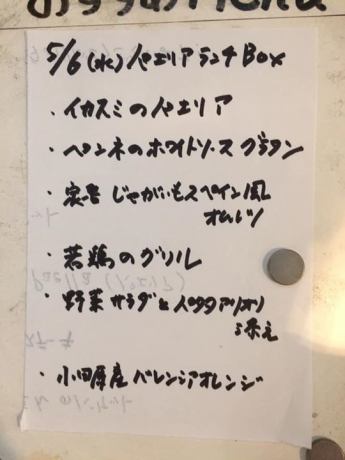 おすすめMenu
5/6(水)パエリアランチBox
・イカスミのパエリア
・ペンネのホワイトソースグラタン
・じゃがいもスペイン風
オムレツ
・若鶏のグリル
・野菜サラダと
添え
・小田原産バレンシアオレンジ